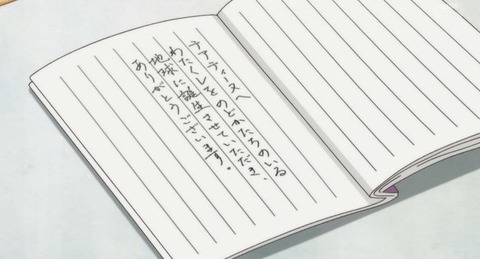 テアティーヌへ
わたくしをのどかたちのいる
地球に誕生させていただき、
ありがとうございます。